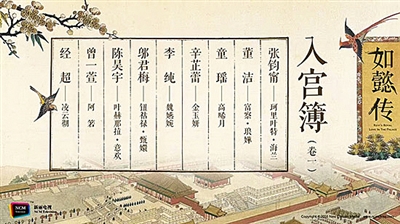 如懿传
入宫簿
（卷一）
张钧甯——珂里叶特·海兰
董洁——富察·琅嬅
童瑶——高晞月
辛芷蕾——金玉妍
李纯——魏嬿婉
邬君梅——钮祜禄·甄嬛
陈昊宇——叶赫那拉·意欢
曾一萱——阿箬
经超——凌云彻
NCM
新丽电视